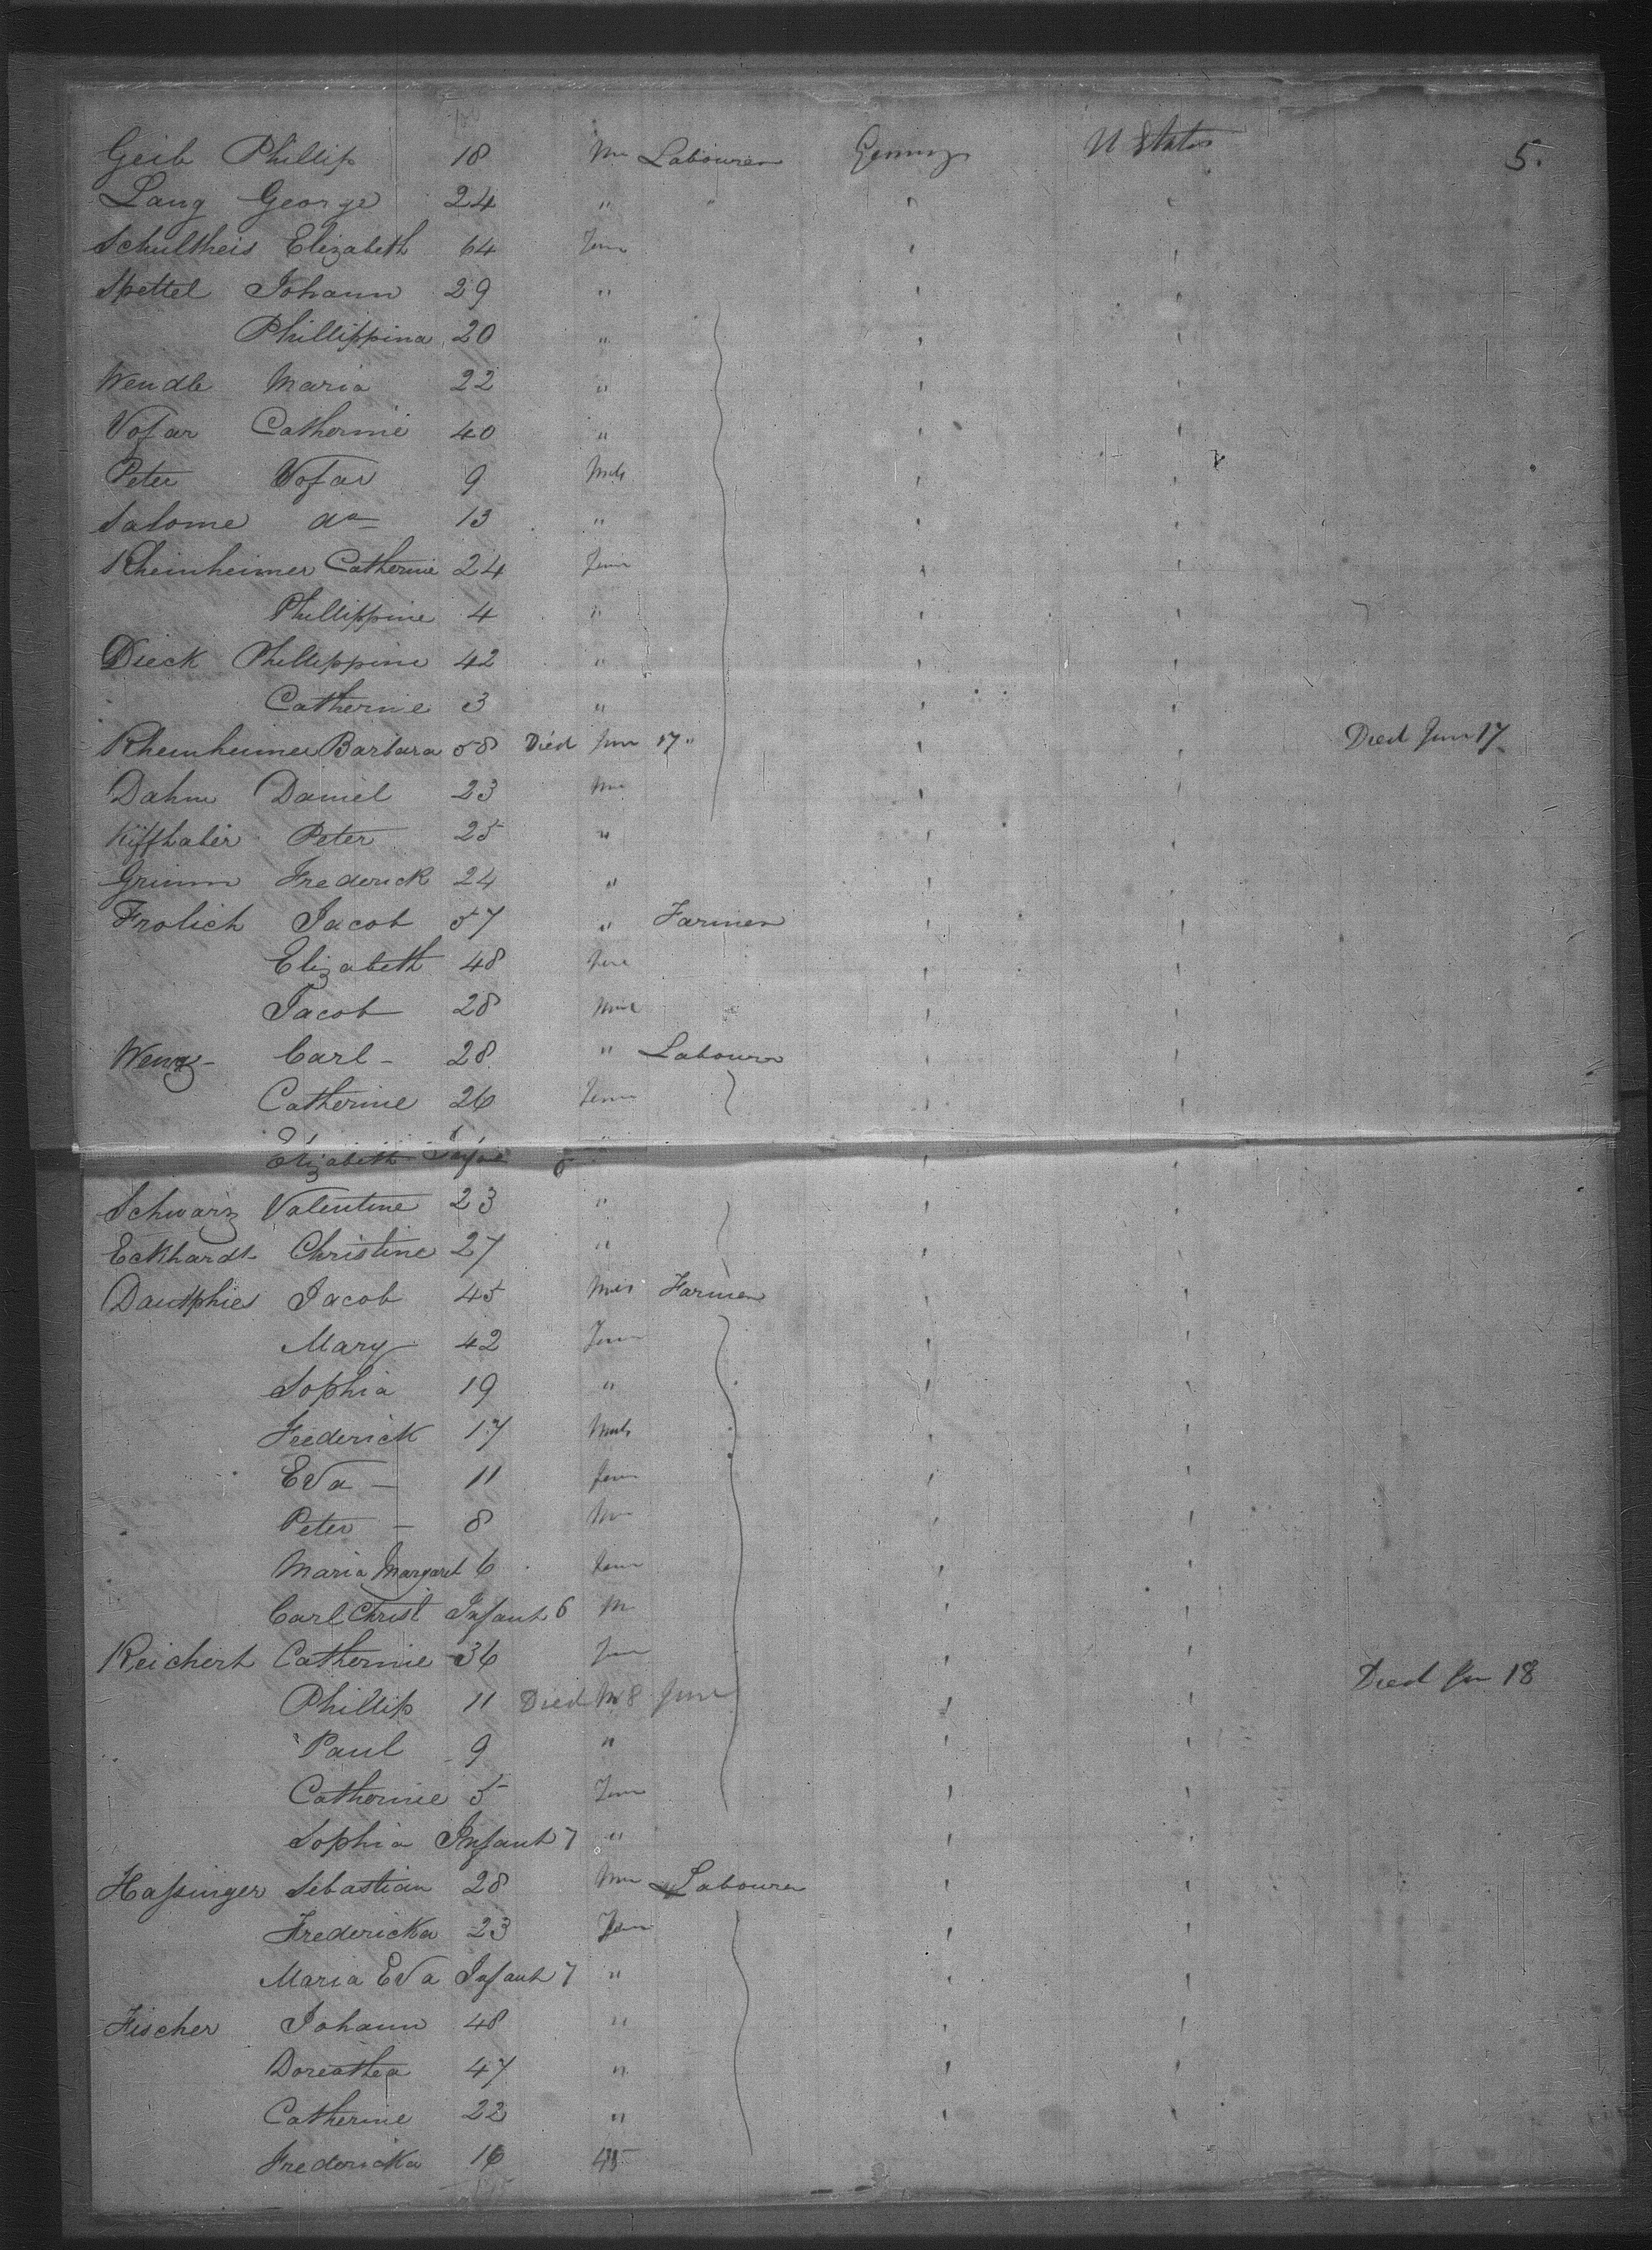 Geib Phillip 18 m Labourer Germy U States 5.
Lang George 24 " " " "
Schultheis Elizabeth 64 Fem " "
Spettel Johann 29 " " "
Phillippina 20 " " "
Wendle Maria 22 " " "
Vofar Catherine 40 " " "
Peter Vofar 9 Male " "
Salome do 13 " " "
Rheinheimer Catherine 24 Fem " "
Phillippine 4 " " "
Dieck Phillippine 42 " " "
Catherine 3 " " "
Rheinheimer Barbara 58 Died June 17 " " " Died June 17
Dahm Daniel 23 m " "
Kiffhaber Peter 25 " " "
Grimm Frederick 24 " " "
Frolich Jacob 57 " Farmer " "
Elizabeth 48 Fem " "
Jacob 28 Male " "
Wenz - Carl - 28 " Labourer " "
Catherine 26 Fem " "
Elizabeth 6 " " "
Schwarz Valentine 23 " " "
Eckhardt Christine 27 " " "
Dautphies Jacob 45 Farmer " "
Mary 42 Fem " "
Sophia 19 " " "
Frederick 17 Male " "
Eva - 11 fem " "
Peter - 8 m " "
Maria Margaret 6 fem " "
Carl Christ Infant 6 m " "
Reichert Catherine 36 Fem " "
Phillip 11 Died 18 June " " Died Jun 18
Paul 9 " " "
Catherine 5 Fem " "
Sophia Infant 7 " " "
Haſsinger Sebastian 28 m Labourer " "
Fredericka 23 Fem " "
Maria Eva Infant 7 " " "
Fischer Johann 48 " " "
Doreathea 47 " " "
Catherine 22 " " "
Fredericka 16 45